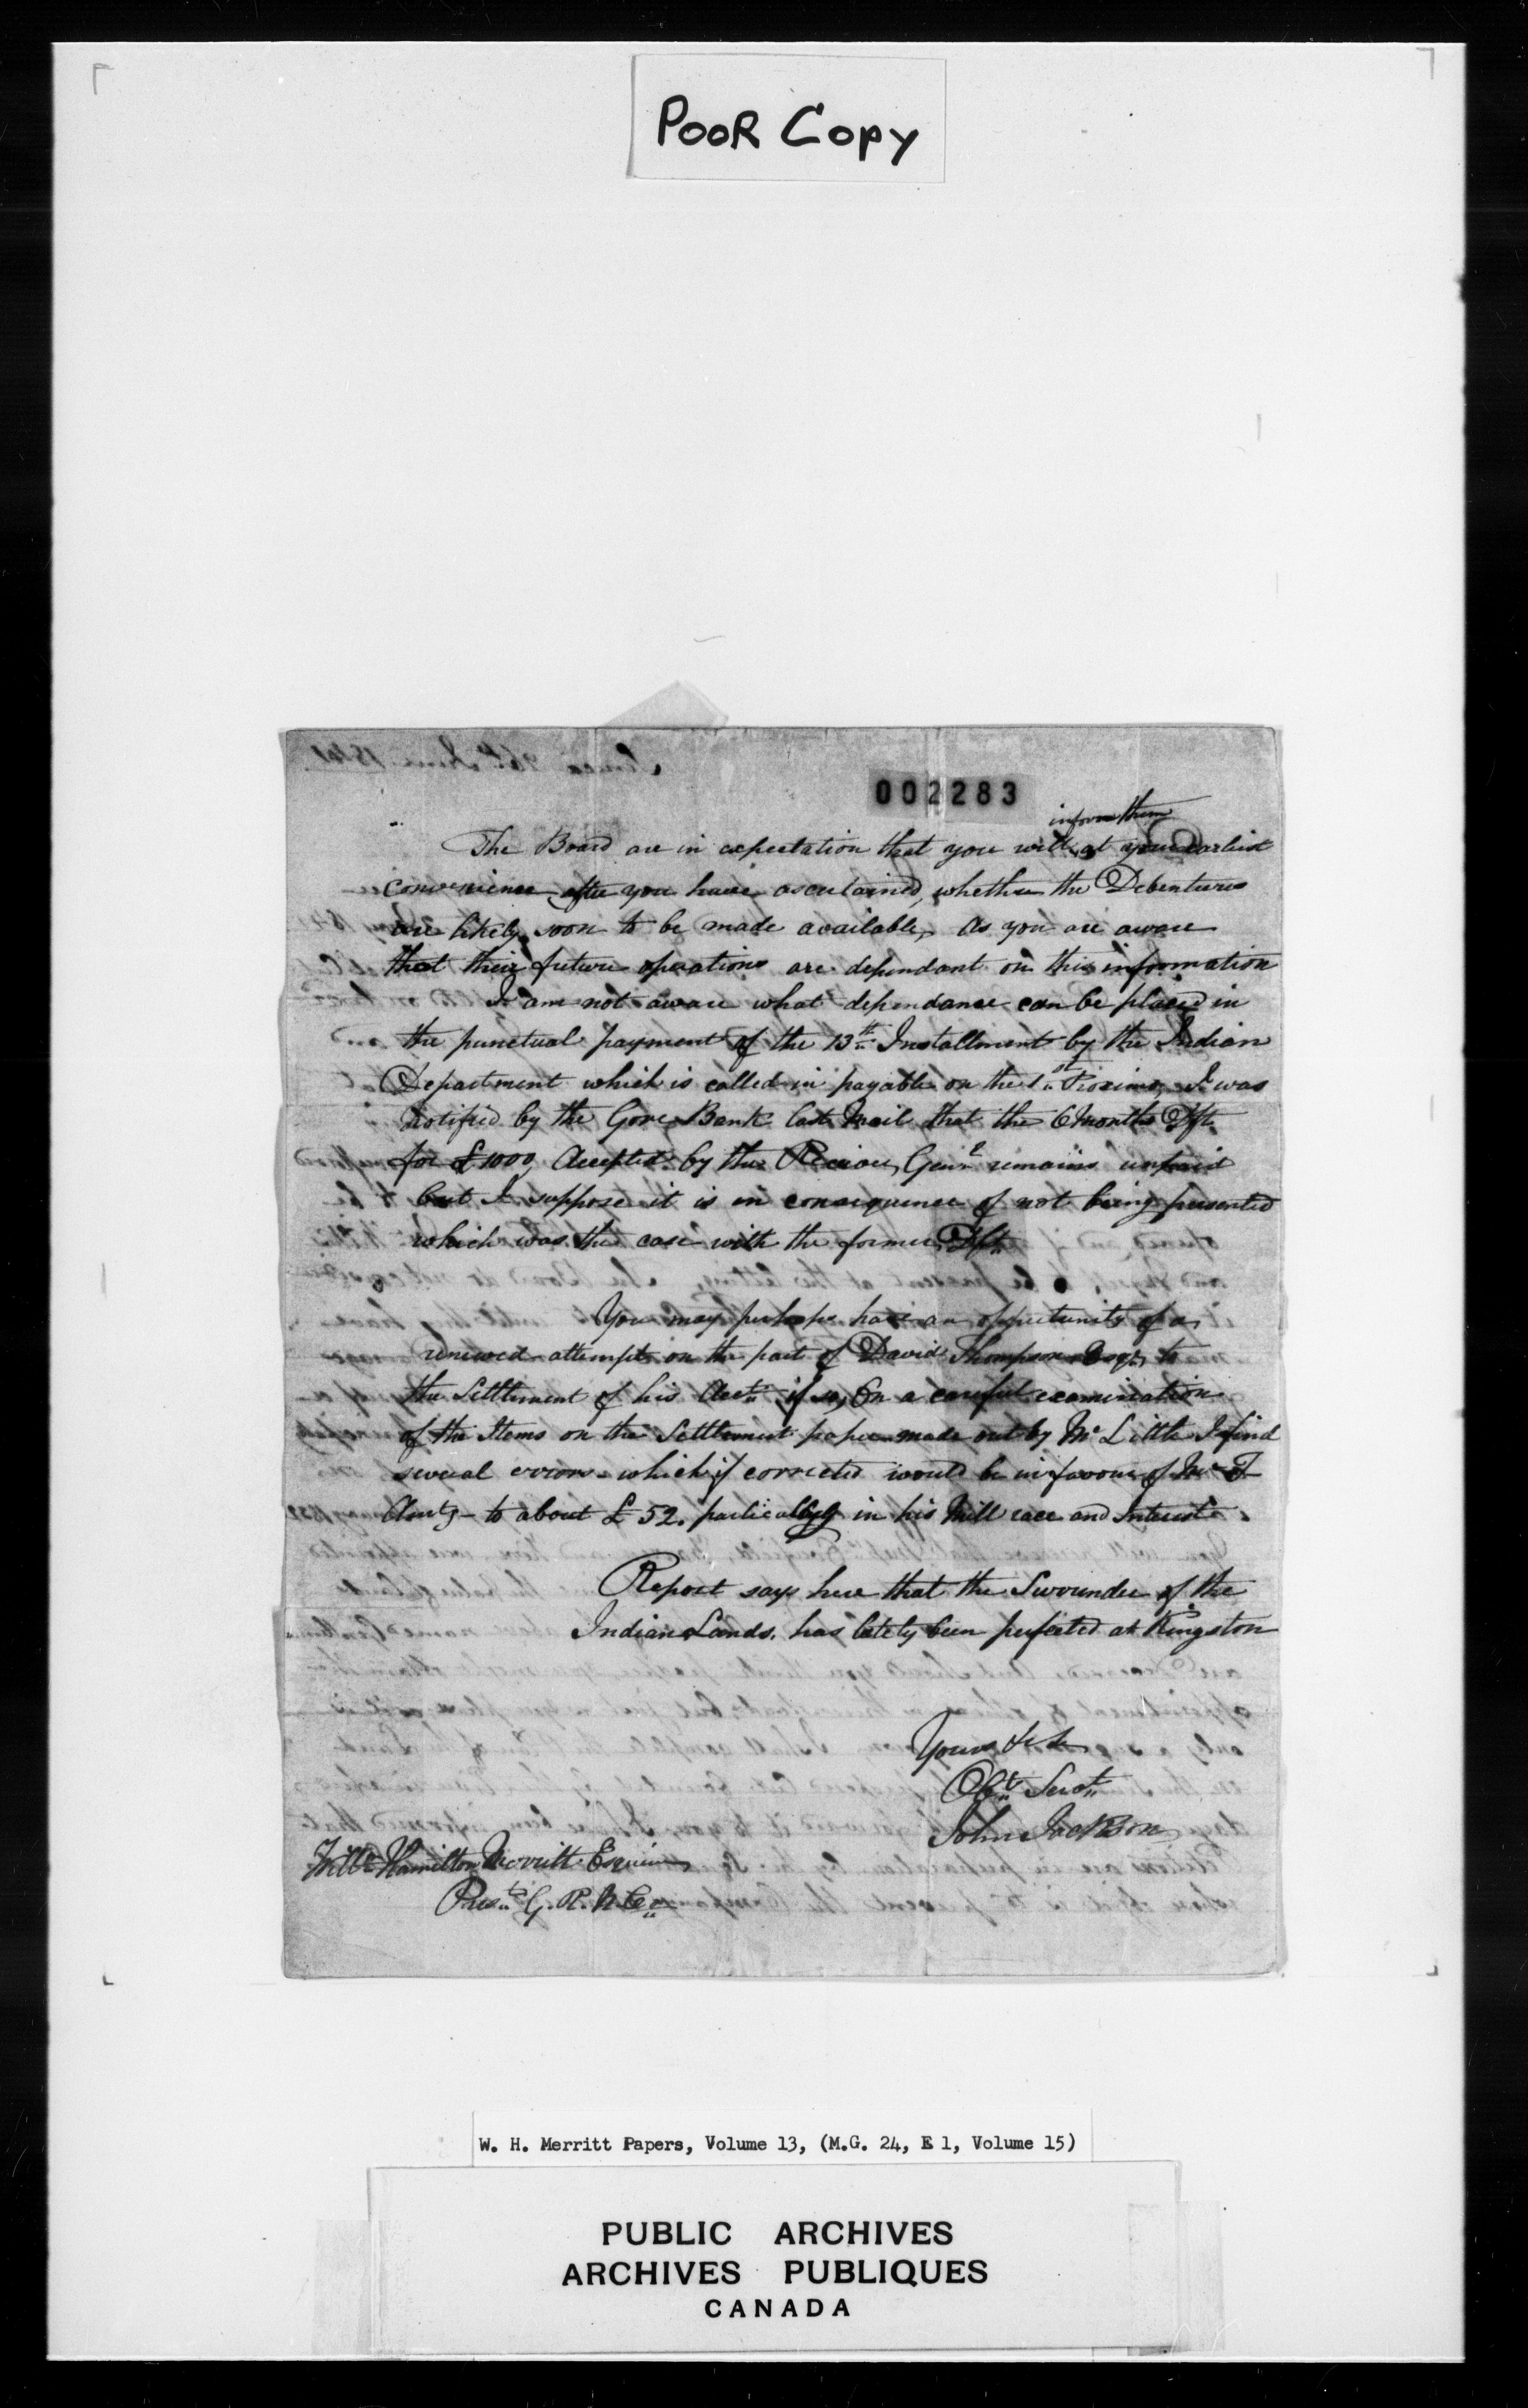 POOR COPY
002283
inform them
The Board are in expectation that you will, at your earliest
convenience after you have ascertained, whether the Debentures
are likely soon to be made available, As you are aware
that their future operations are dependant on this information
I am not aware what dependance can be placed in
the punctual payment of the 13th Installment by the Indian
Department which is called in payable on the 1st Proximo, I was
notified by the Gore Bank last Mail that the 6 Months Dft
for £1000, Accepted by the Genl remains unpaid
but I suppose it is in consequence of not being presented
which was the case with the former Dft
You may perhaps have an oppertunity of a
renewed attempt on the part of David Thompson Esqr, to
the Settlement of his Acct. if so, On a careful examination
of the Items on the Settlement paper made out by Mr Little I find
several errors which if corrected would be in favour of Mr T
Amtg to about £52. in his Mill race and Interest
Report says here that the Surrounder of the
Indian Lands. has lately been perfected at Kingston
Yours &c &c
Obt Servt
John Jackson
Willm Hamilton Merritt Esquire
Prest G. R. N. Co
W. H. Merritt Papers, Volume 13, (M.G. 24, E 1, Volume 15)
PUBLIC ARCHIVES
ARCHIVES PUBLIQUES
CANADA